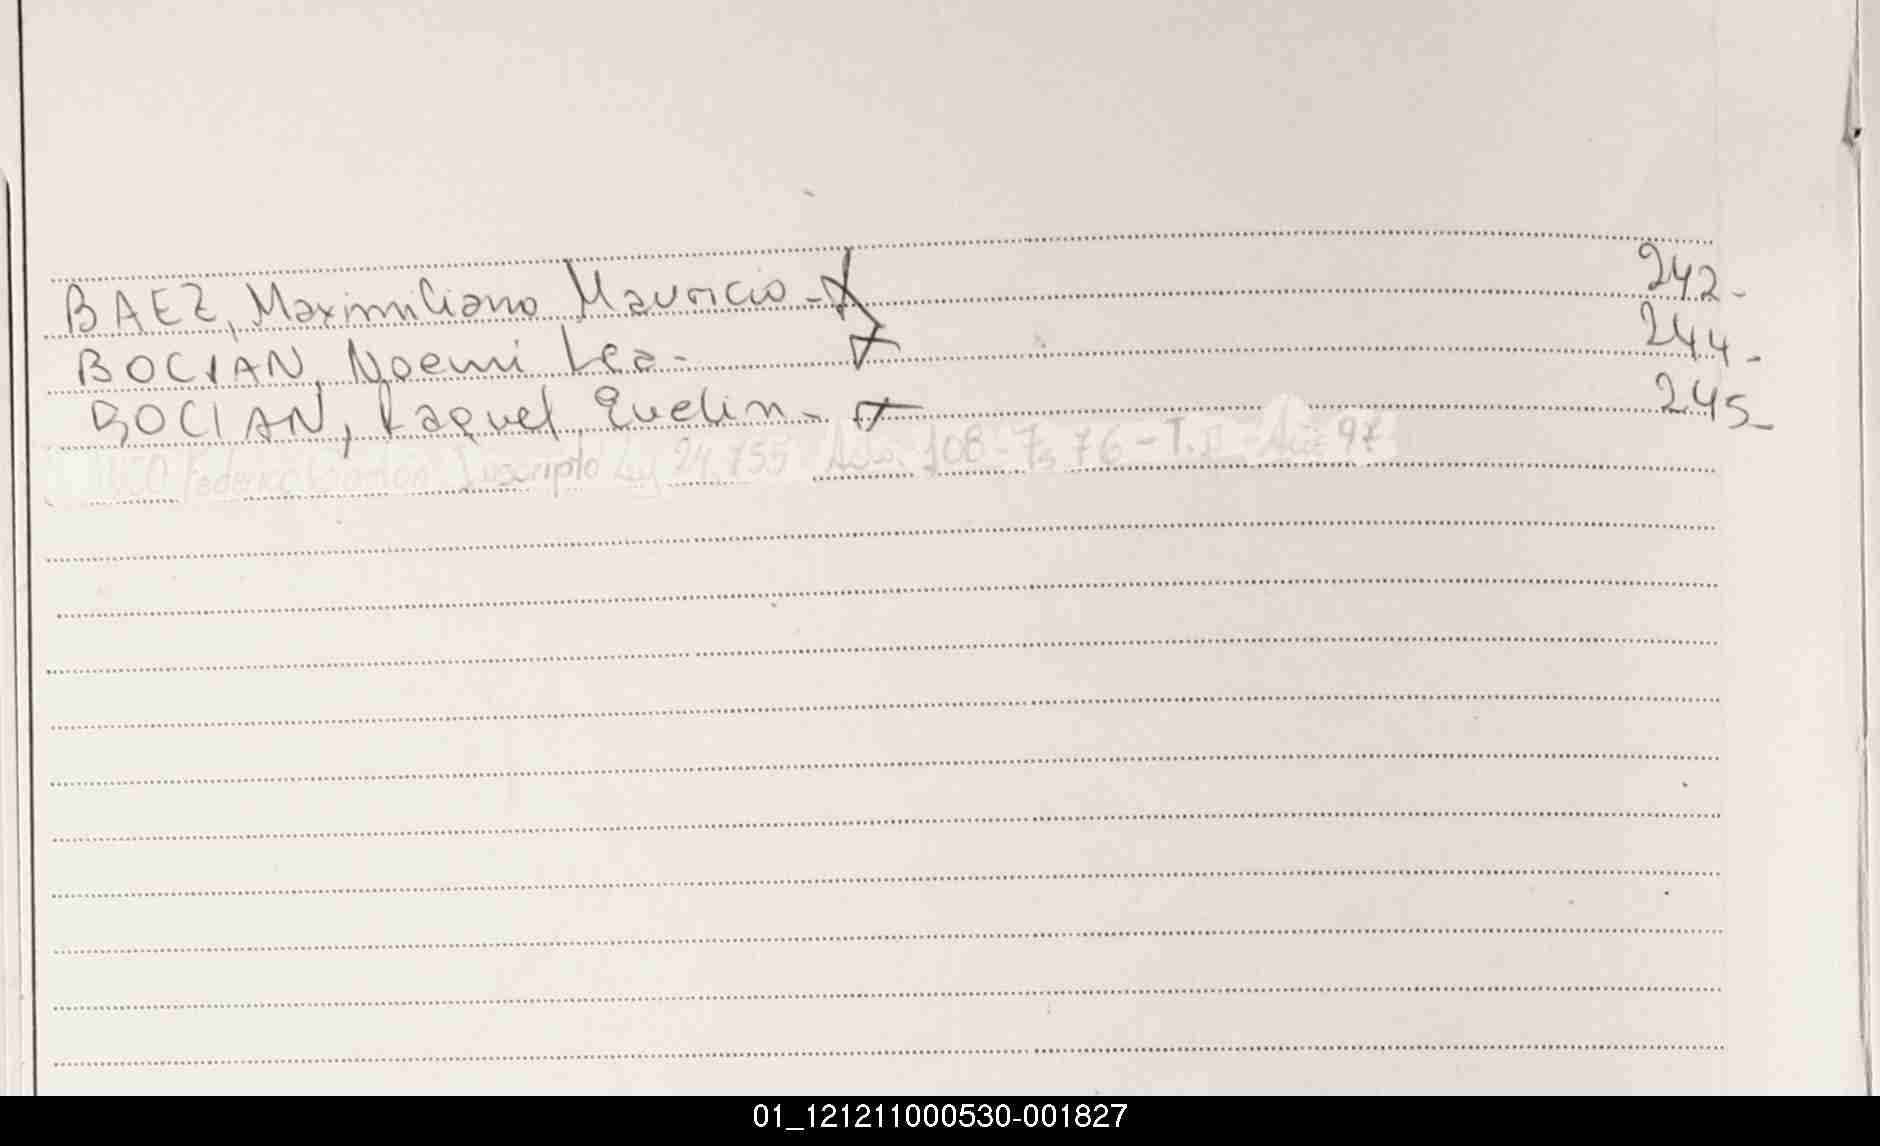 BAEZ, Maximiliano Mauricio - 242-
BOCIAN, Noemi Lea - 244-
BOCIAN, Raquel Evelin - 245-
Federico Inscripto Ley 24.755 108 - Fs 76 - T. II - 97
01_121211000530-001827